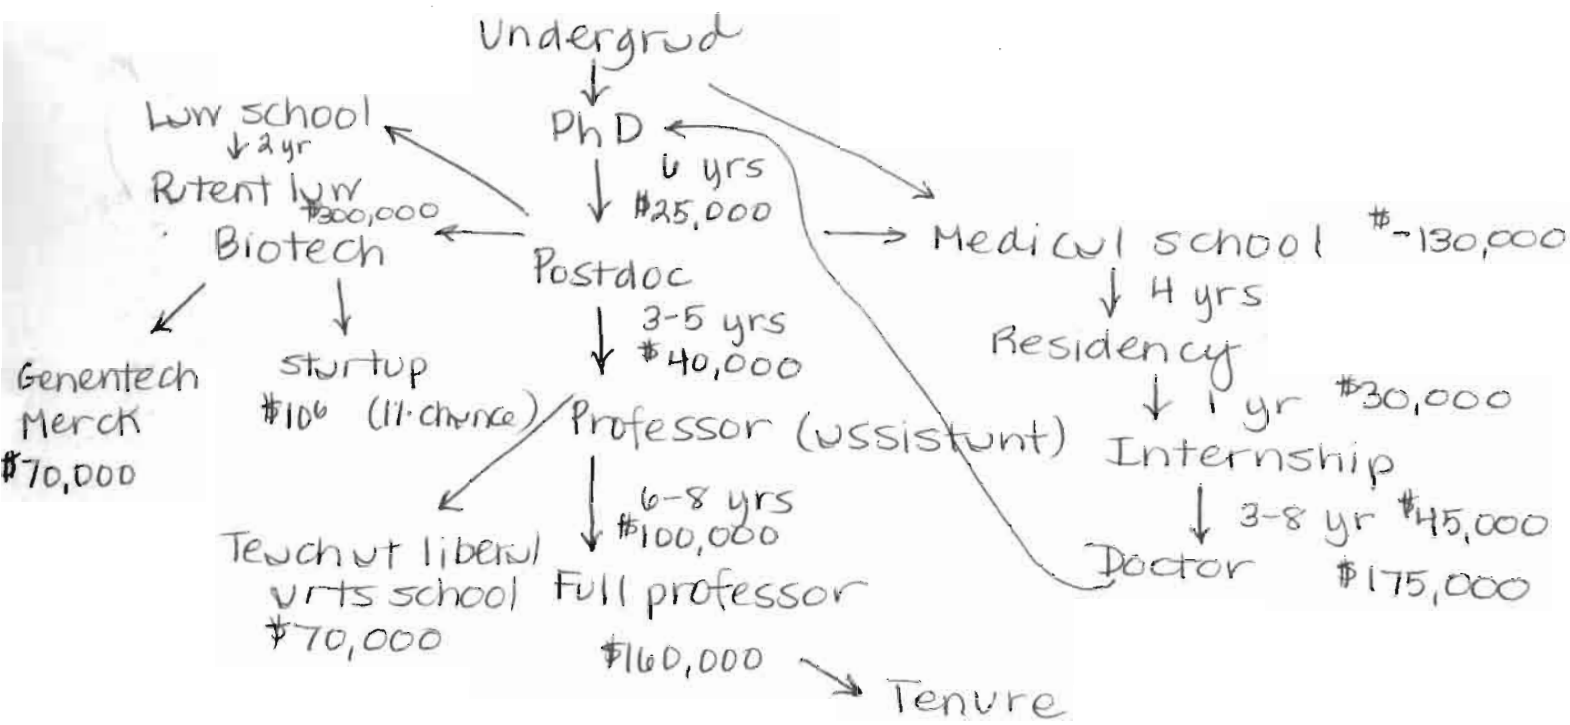 Undergrad
PhD
6 yrs
$25,000
Postdoc
3-5 yrs
$40,000
Professor (assistant)
6-8 yrs
$100,000
Full professor
$160,000
Tenure
Law school
2 yr
Patent law
$300,000
Biotech
Genentech
Merck
$70,000
startup
(1% chance)
Teach at liberal
arts school
$70,000
Medical school $-130,000
4 yrs
Residency
1 yr $30,000
Internship
3-8 yr $45,000
Doctor $175,000